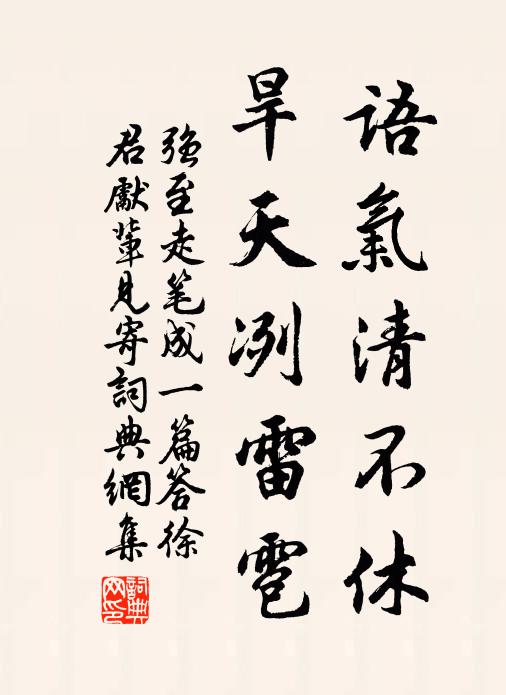 語氣清不休
旱天冽雷雹
強至走笔成一篇答徐
君獻輩見寄詞典網集
詞典网印